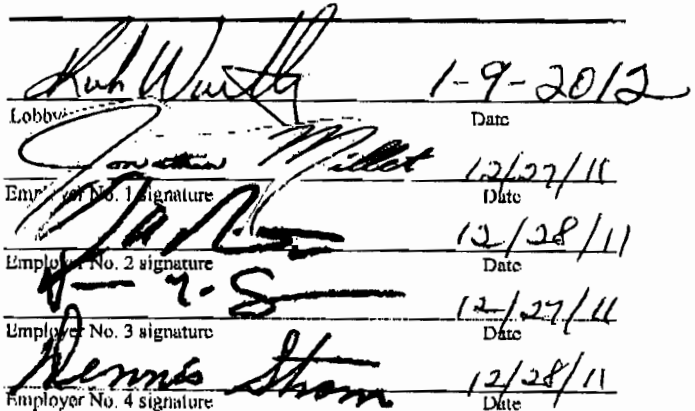 1-9-2012
Lobby Date
Jonathan Millet 12/27/11
Employer No. 1 signature Date
12/28/11
Employer No. 2 signature Date
12/27/11
Employer No. 3 signature Date
Dennis Strom 12/28/11
Employer No. 4 signature Date